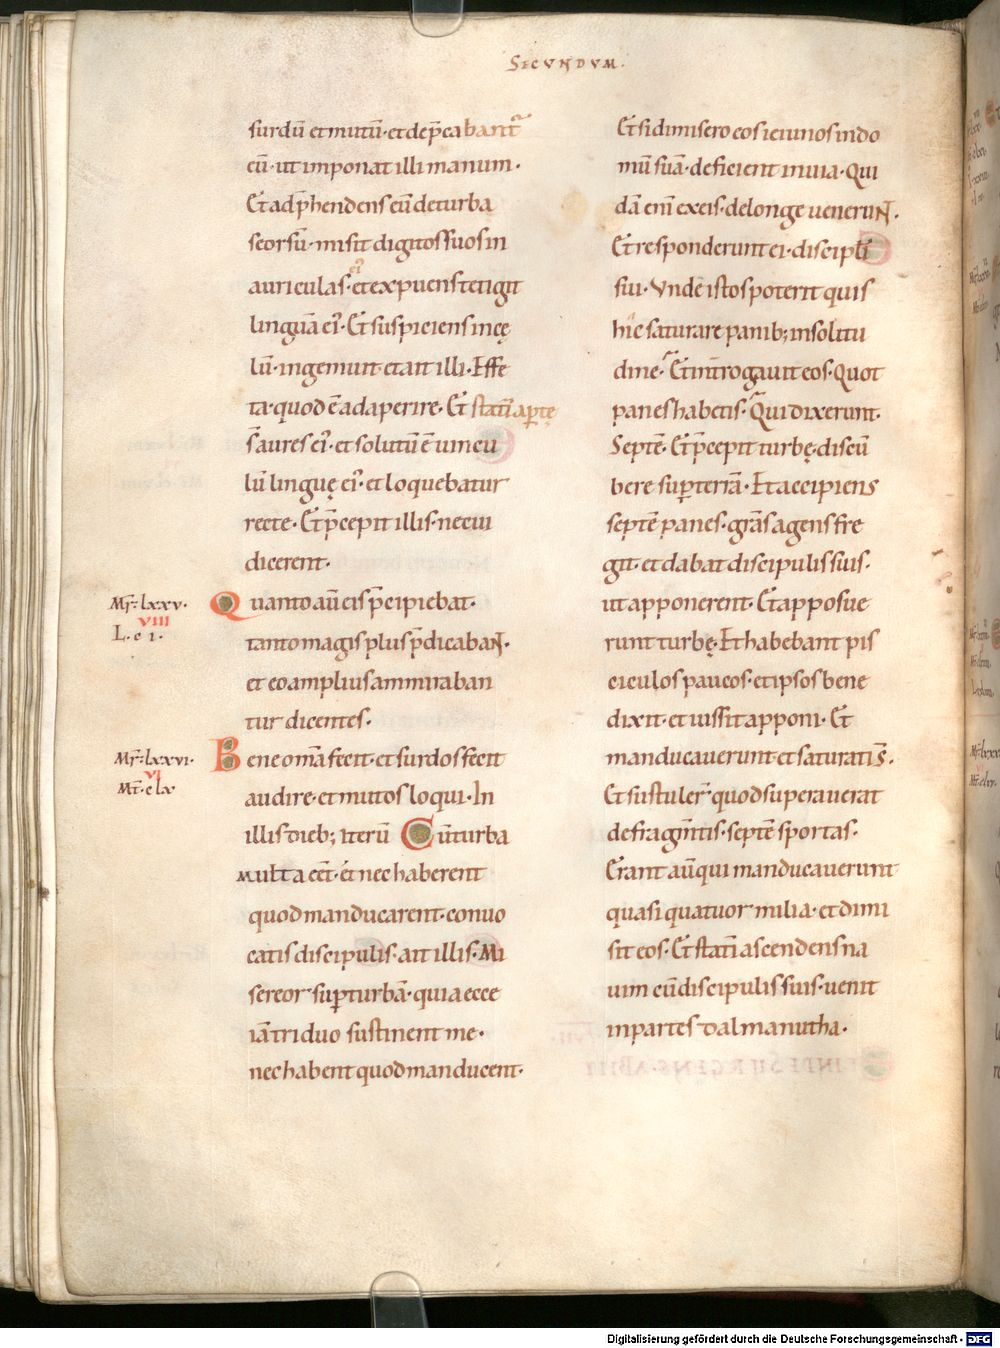 SECUNDUM.
surdū et mutū· et dep̄cabant᷑
eū· ut imponat illi manum·
Et adp̄hendens eū de turba
seorsū· misit digitos suos in
auriculas ei᷒· et expuens tetigit
linguā ei᷒· Et suspiciens in cę
lū· ingemuit et ait illi· Effe
ta· quod ē adaperire· Et statī apertę
s̄ aures ei᷒· et solutū ē uincu
lū linguę ei᷒· et loquebatur
recte· Et p̄cepit illis· ne cui
dicerent·
Mr̄· lxxv·
VIII
L· c i·
Quanto aū eis p̄cipiebat·
tanto magis plus p̄dicabant·
et eo amplius ammiraban
tur dicentes·
Mr̄· lxxvi·
VI
Mt̄· clx
Bene om̄a fecit· et surdos fecit
audire· et mutos loqui· In
illis dieb; iterū Cū turba
multa eēt· ét nec haberent
quod manducarent· conuo
catis discipulis· ait illis· Mi
sereor sup̱ turbā· quia ecce
iā triduo sustinent me·
nec habent quod manducent·
Et si dimisero eos ieiunos in do
mū suā· deficient in uia· Qui
dā eni᷒ ex eis· de longe uenerunt·
Et responderunt ei· discipuli
sui· Vnde istos poterit quis
hic saturare panib; in solitu
dine· Et int̄rogauit eos· Quot
panes habetis· Qui dixerunt·
Septē· Et p̄cepit turbę· discū
bere sup̱ terrā· Et accipiens
septē panes· gr̄as agens fre
git· et dabat discipulis suis·
ut apponerent· Et apposue
runt turbę· Et habebant pis
ciculos paucos· et ipsos bene
dixit· et iussit apponi· Et
manducauerunt· et saturati s̄·
Et sustuler̄· quod superauerat
de fragm̄tis· septē sportas·
Erant aū qui manducauerunt
quasi quatuor milia· et dimi
sit eos· Et statī ascendens na
uim cū discipulis suis· uenit
in partes dalmanutha·
Digitalisierung gefördert durch die Deutsche Forschungsgemeinschaft - DFG